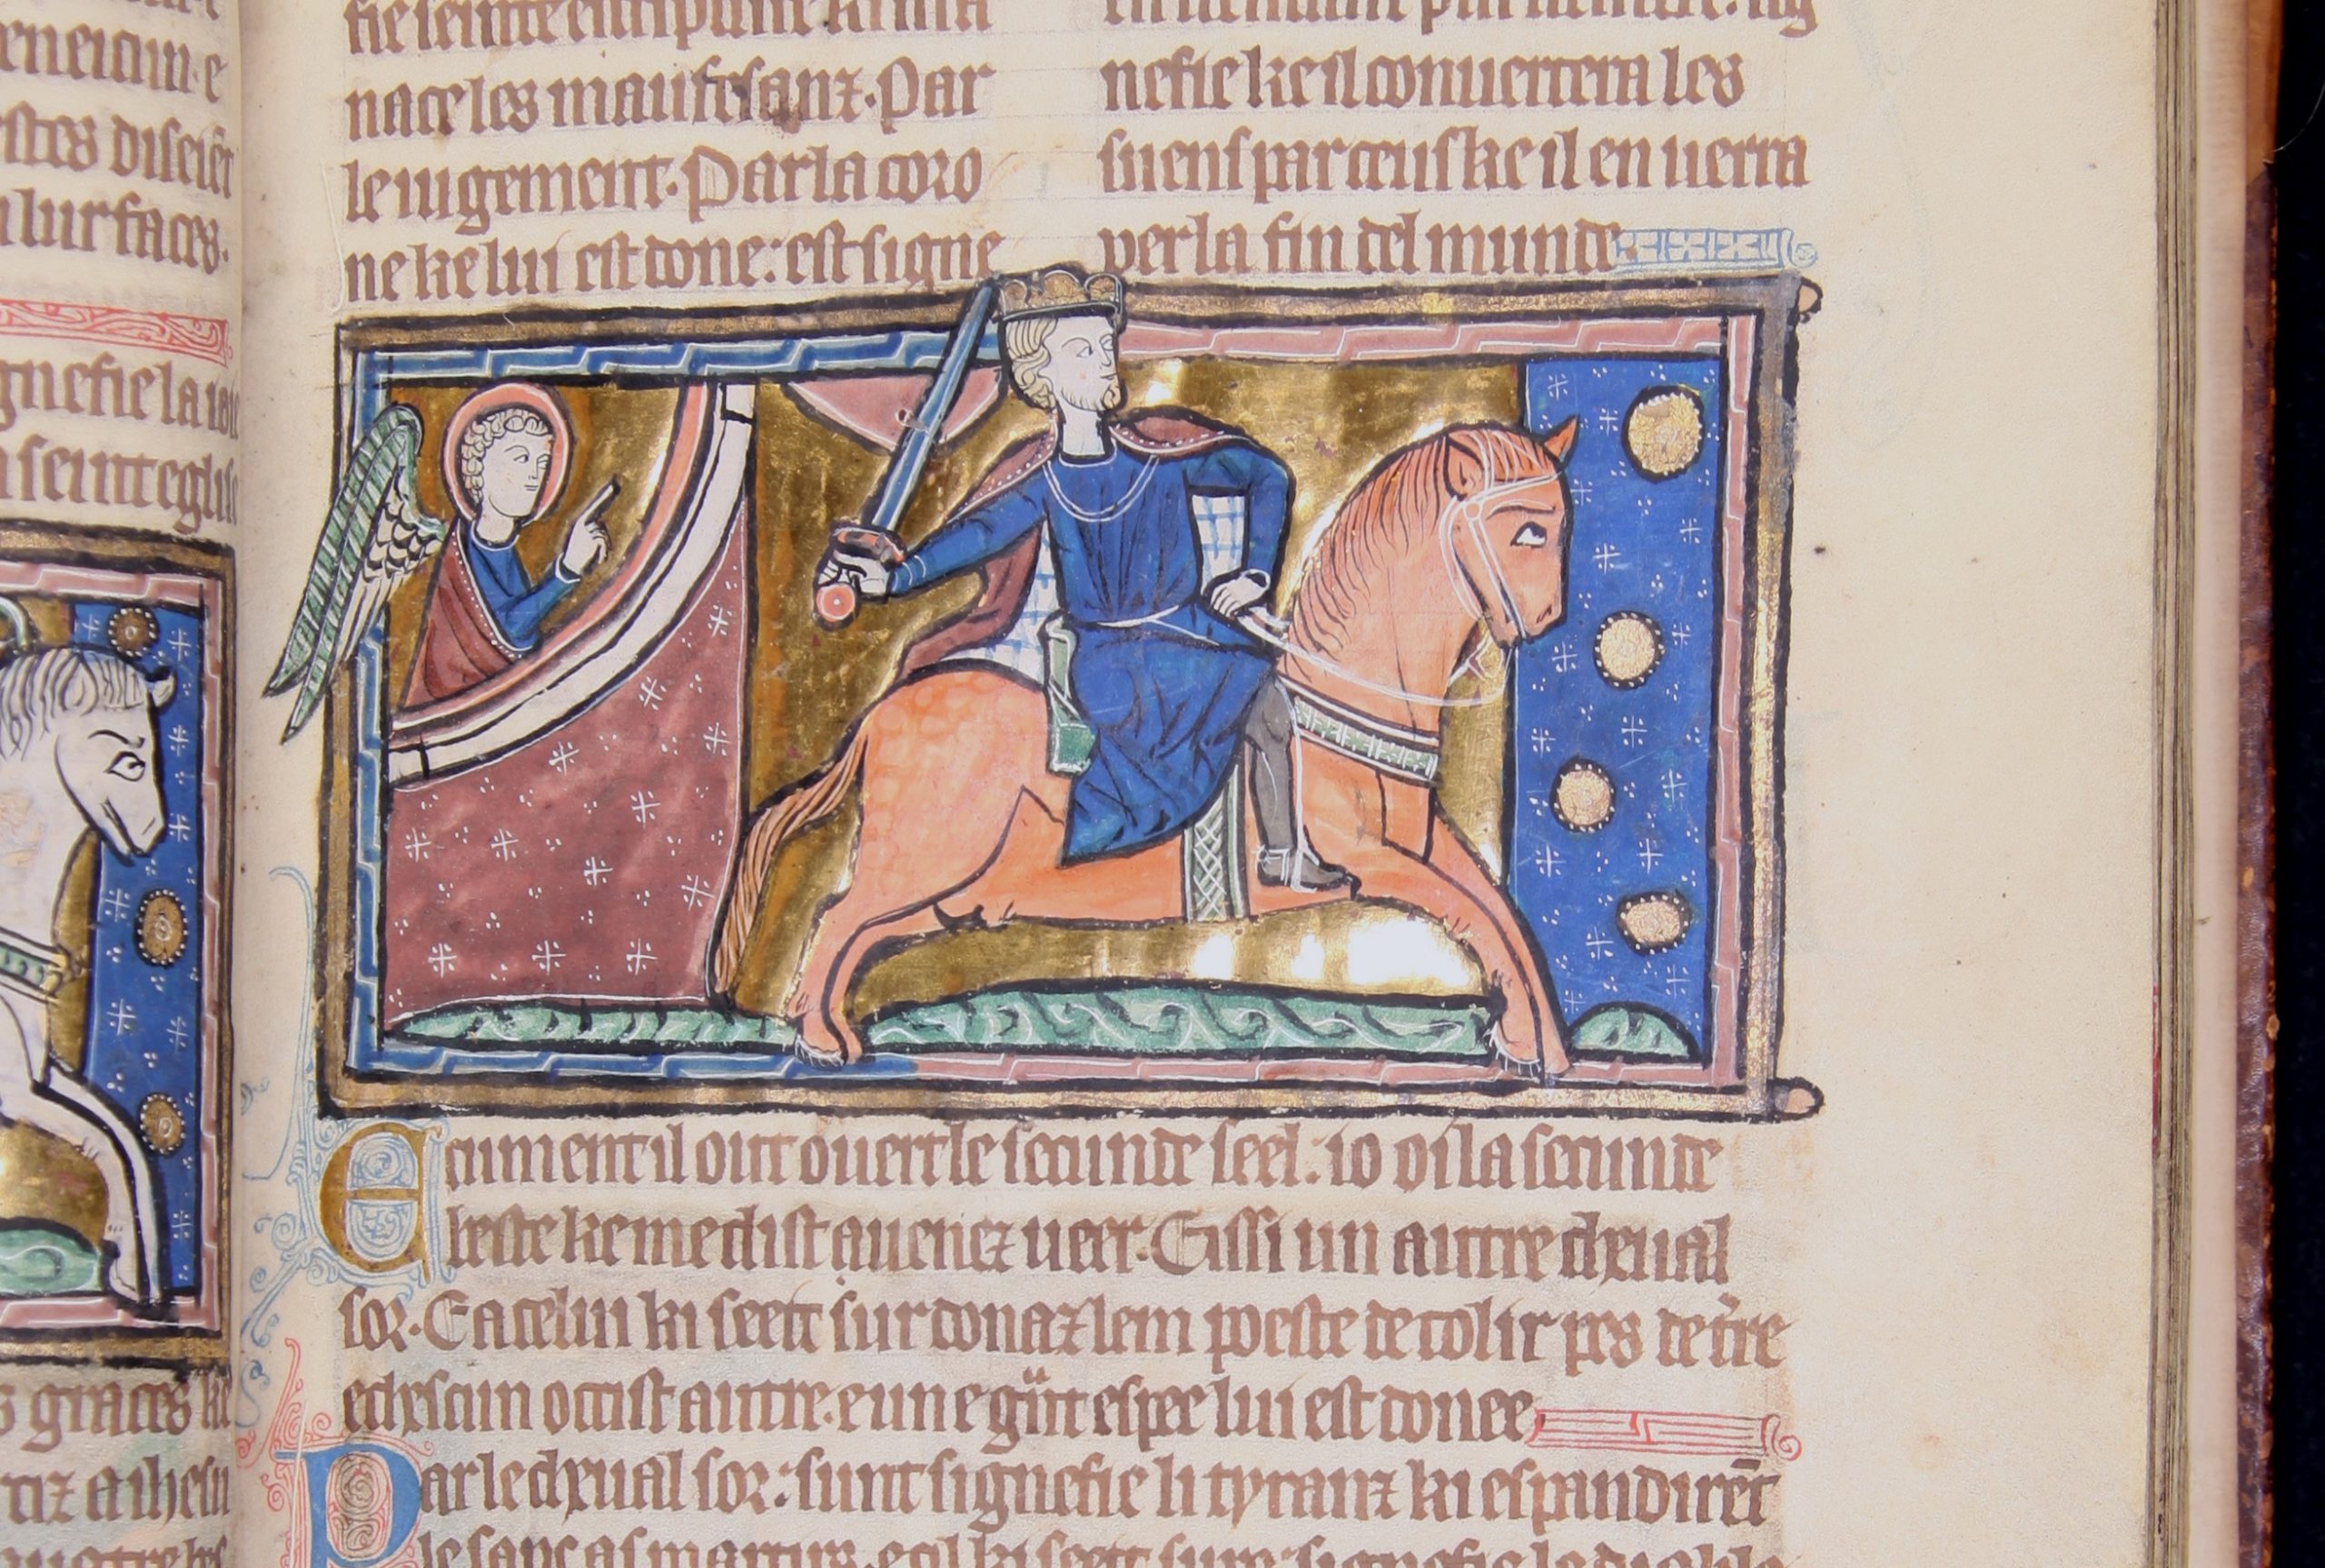 eneicun. e
stes diseiēt
lur faces.
gnefie la
seint eglise
graces ke
tiz a ihesu
nace les maufesanz. Par
le iugement. Par la coro
ne ke lui est done: est signe
nefie ke il conuertera les
suens par ceus ke il en uerra
per la fin del munde.
E cument il out ouert le secunde seel. io oi la secunde
beste ke me dist auenez ueer. Eissi un autre cheual
sor. E a celui ki seeit sur donaz lem poeste de tolir pes de t̄re
e chescun occist autre. e une g̈nt espee lui est donee
Par le cheual sor: sunt signefie li tyranz ki espandirēt
le sanc as martirs. e cil ki seeit sure: signefie le diable